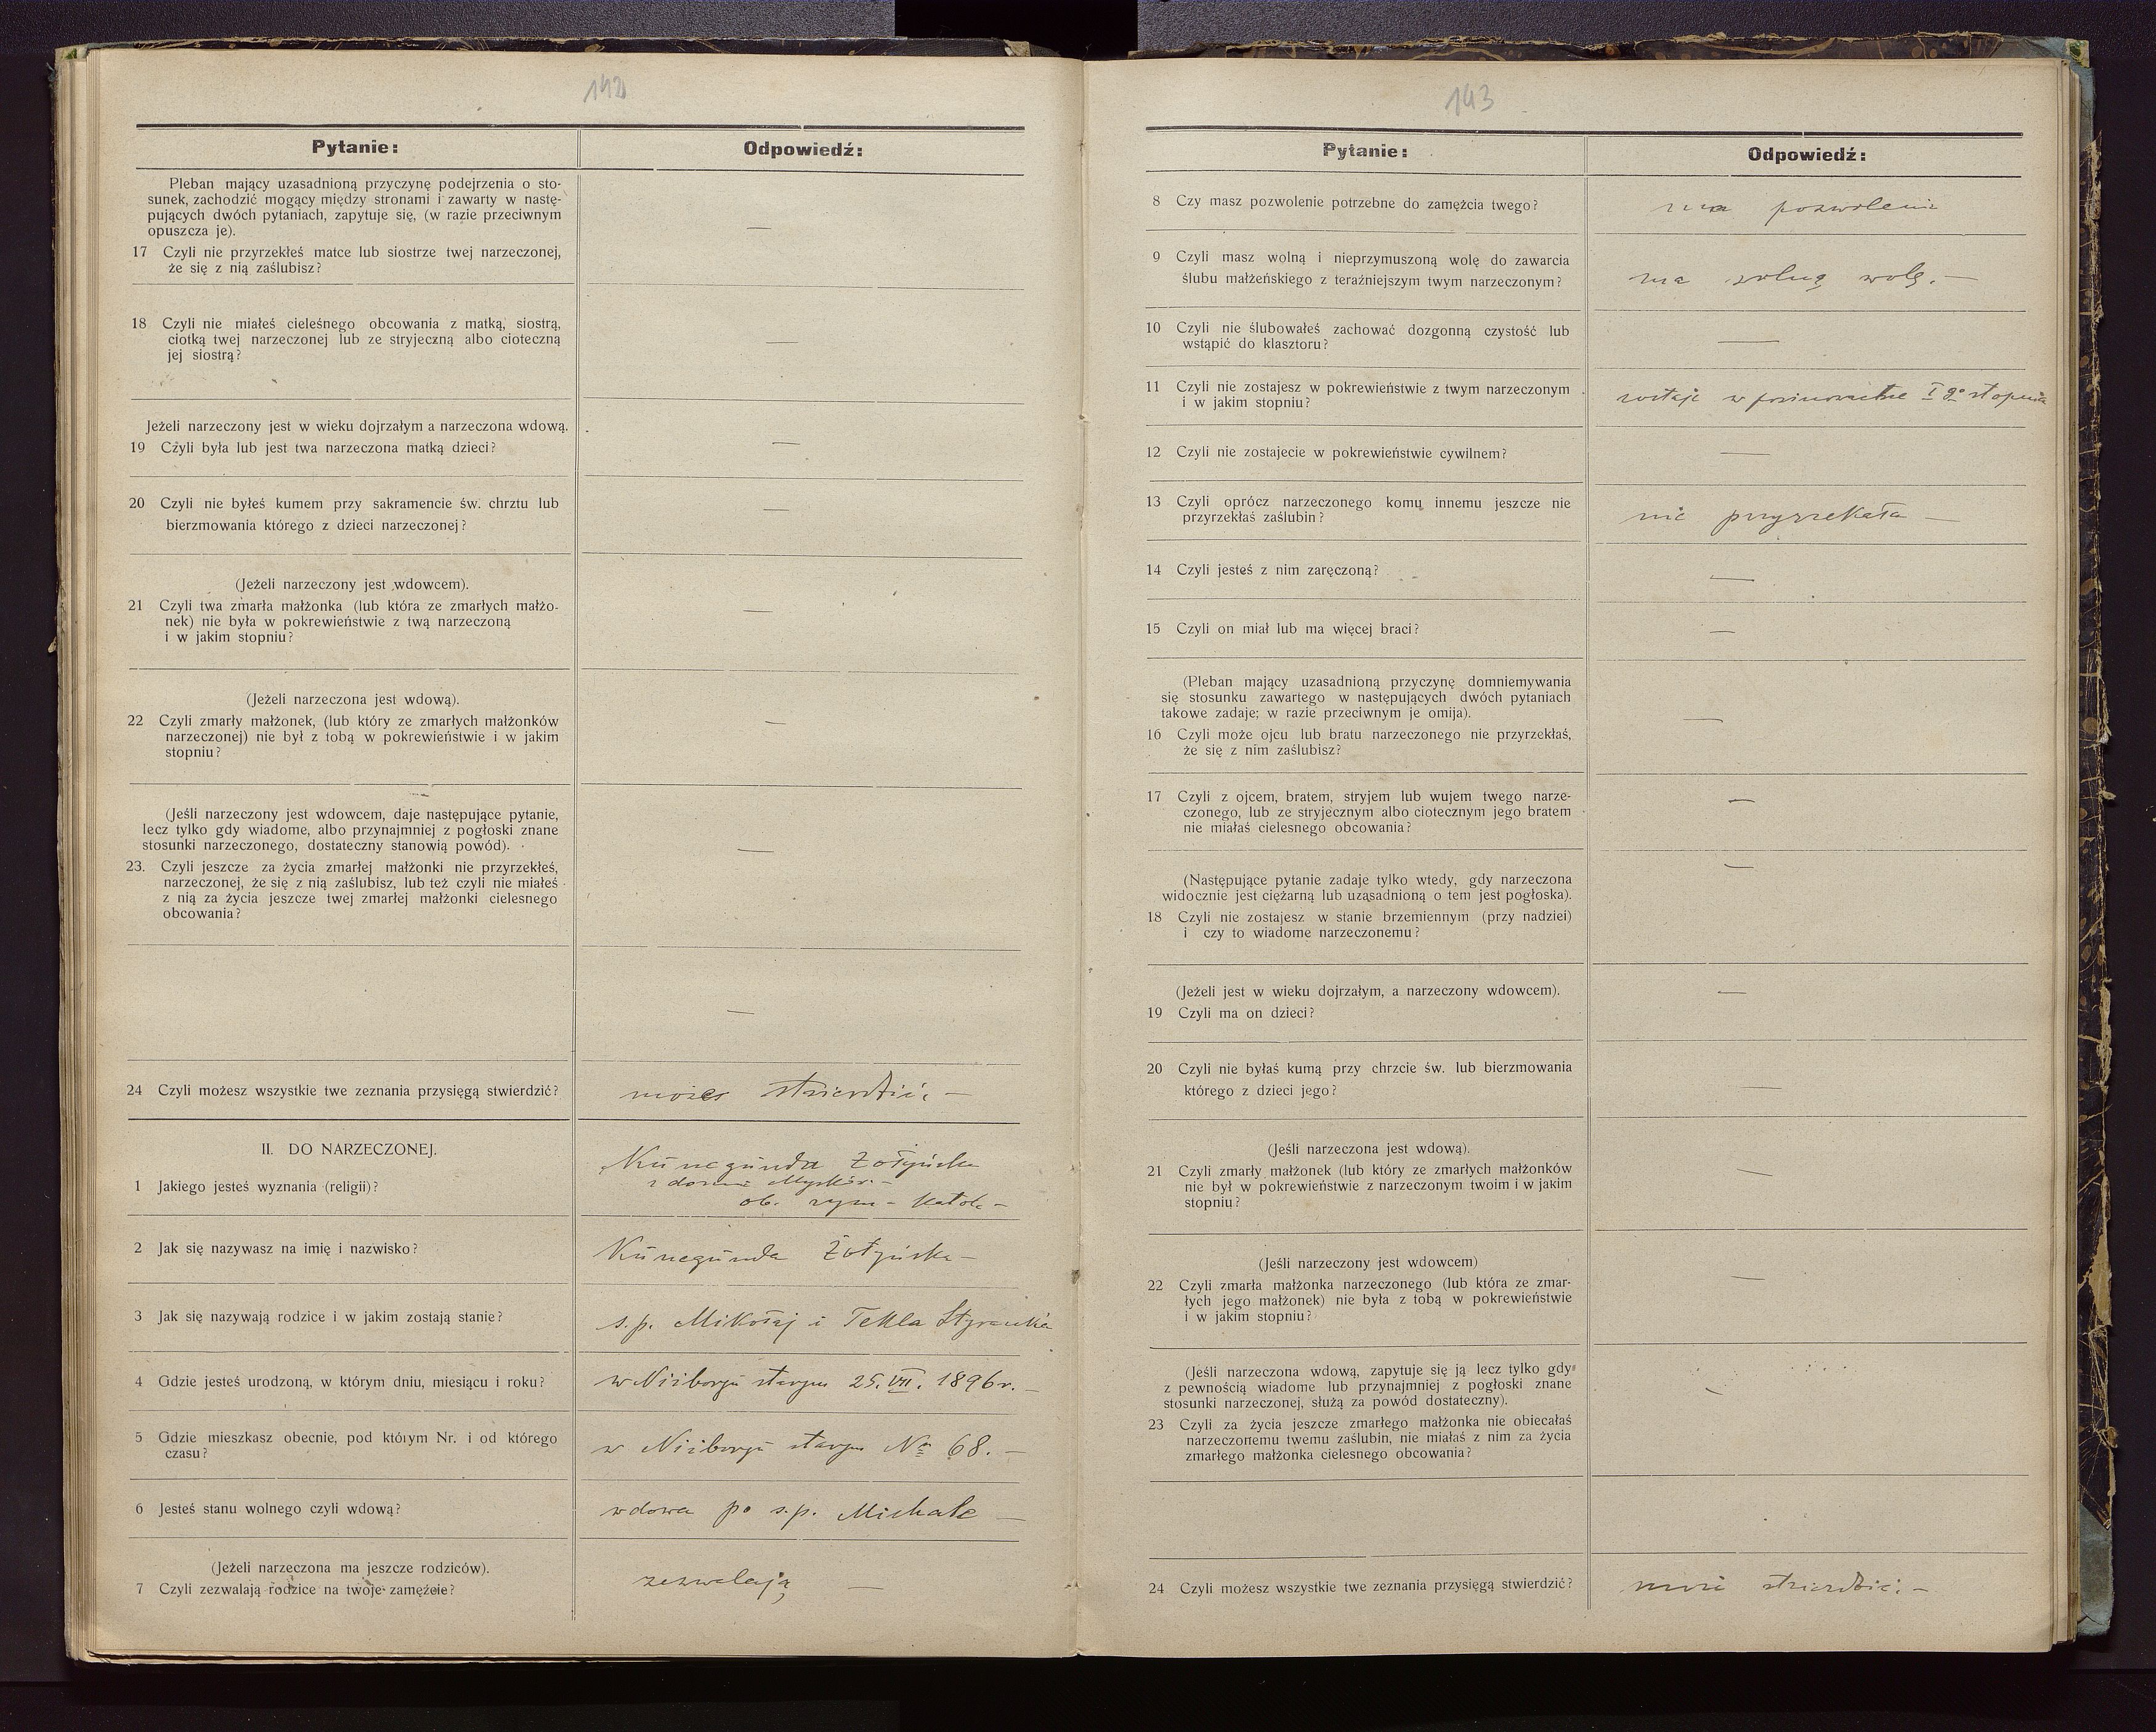 142
Pytanie:
Odpowiedź:
Pleban mający uzasadnioną przyczynę podejrzenia o sto-
sunek, zachodzić mogący między stronami i zawarty w nastę-
pujących dwóch pytaniach, zapytuje się, (w razie przeciwnym
opuszcza je).
—
17 Czyli nie przyrzekłeś matce lub siostrze twej narzeczonej,
że się z nią zaślubisz?
18 Czyli nie miałeś cieleśnego obcowania z matką, siostrą,
ciotką twej narzeczonej lub ze stryjeczną albo cioteczną
jej siostrą?
—
Jeżeli narzeczony jest w wieku dojrzałym a narzeczona wdową.
19 Czyli była lub jest twa narzeczona matką dzieci?
—
20 Czyli nie byłeś kumem przy sakramencie św. chrztu lub
bierzmowania którego z dzieci narzeczonej?
—
(Jeżeli narzeczony jest wdowcem).
21 Czyli twa zmarła małżonka (lub która ze zmarłych małżo-
nek) nie była w pokrewieństwie z twą narzeczoną
i w jakim stopniu?
—
(Jeżeli narzeczona jest wdową).
22 Czyli zmarły małżonek, (lub który ze zmarłych małżonków
narzeczonej) nie był z tobą w pokrewieństwie i w jakim
stopniu?
—
(Jeśli narzeczony jest wdowcem, daje następujące pytanie,
lecz tylko gdy wiadome, albo przynajmniej z pogłoski znane
stosunki narzeczonego, dostateczny stanowią powód).
—
23. Czyli jeszcze za życia zmarłej małżonki nie przyrzekłeś,
narzeczonej, że się z nią zaślubisz, lub też czyli nie miałeś
z nią za życia jeszcze twej zmarłej małżonki cielesnego
obcowania?
—
24 Czyli możesz wszystkie twe zeznania przysięgą stwierdzić?
możes stwierdzić. —
II. DO NARZECZONEJ.
1 Jakiego jesteś wyznania (religii)?
Kunegunda Żołyńska
z domu
ob. rzym - katol. —
2 Jak się nazywasz na imię i nazwisko?
Kunegunda Żołyńska —
3 Jak się nazywają rodzice i w jakim zostają stanie?
s.p. Mikołaj i Tekla
4 Gdzie jesteś urodzoną, w którym dniu, miesiącu i roku?
w Niżborgu starym 25. VII. 1896 r. —
5 Gdzie mieszkasz obecnie, pod którym Nr. i od którego
czasu?
w Niżborgu starym No 68. —
6 Jesteś stanu wolnego czyli wdową?
wdowa po s.p. Michale —
(Jeżeli narzeczona ma jeszcze rodziców).
7 Czyli zezwalają rodzice na twoje zamęźcie?
zezwalają —
143
Pytanie:
Odpowiedź:
8 Czy masz pozwolenie potrzebne do zamężcia twego?
ma pozwolenie
9 Czyli masz wolną i nieprzymuszoną wolę do zawarcia
ślubu małżeńskiego z teraźniejszym twym narzeczonym?
ma wolną wolę. —
10 Czyli nie ślubowałeś zachować dozgonną czystość lub
wstąpić do klasztoru?
—
11 Czyli nie zostajesz w pokrewieństwie z twym narzeczonym
i w jakim stopniu?
zostaje w powinowactwie I go stopnia
12 Czyli nie zostajecie w pokrewieństwie cywilnem?
—
13 Czyli oprócz narzeczonego komu innemu jeszcze nie
przyrzekłaś zaślubin?
nie przyrzekała —
14 Czyli jesteś z nim zaręczoną?
—
15 Czyli on miał lub ma więcej braci?
—
(Pleban mający uzasadnioną przyczynę domniemywania
się stosunku zawartego w następujących dwóch pytaniach
takowe zadaje; w razie przeciwnym je omija).
—
16 Czyli może ojcu lub bratu narzeczonego nie przyrzekłaś,
że się z nim zaślubisz?
17 Czyli z ojcem, bratem, stryjem lub wujem twego narze-
czonego, lub ze stryjecznym albo ciotecznym jego bratem
nie miałaś cielesnego obcowania?
—
(Następujące pytanie zadaje tylko wtedy, gdy narzeczona
widocznie jest ciężarną lub uzasadnioną o tem jest pogłoska).
—
18 Czyli nie zostajesz w stanie brzemiennym (przy nadziei)
i czy to wiadome narzeczonemu?
(Jeżeli jest w wieku dojrzałym, a narzeczony wdowcem).
—
19 Czyli ma on dzieci?
20 Czyli nie byłaś kumą przy chrzcie św. lub bierzmowania
którego z dzieci jego?
—
(Jeśli narzeczona jest wdową).
21 Czyli zmarły małżonek (lub który ze zmarłych małżonków
nie był w pokrewieństwie z narzeczonym twoim i w jakim
stopniu?
—
(Jeśli narzeczony jest wdowcem)
22 Czyli zmarła małżonka narzeczonego (lub która ze zmar-
łych jego małżonek) nie była z tobą w pokrewieństwie
i w jakim stopniu?
—
(Jeśli narzeczona wdową, zapytuje się ją lecz tylko gdy
z pewnością wiadome lub przynajmniej z pogłoski znane
stosunki narzeczonej, służą za powód dostateczny).
—
23 Czyli za życia jeszcze zmarłego małżonka nie obiecałaś
narzeczonemu twemu zaślubin, nie miałaś z nim za życia
zmarłego małżonka cielesnego obcowania?
24 Czyli możesz wszystkie twe zeznania przysięgą stwierdzić?
może stwierdzić. —